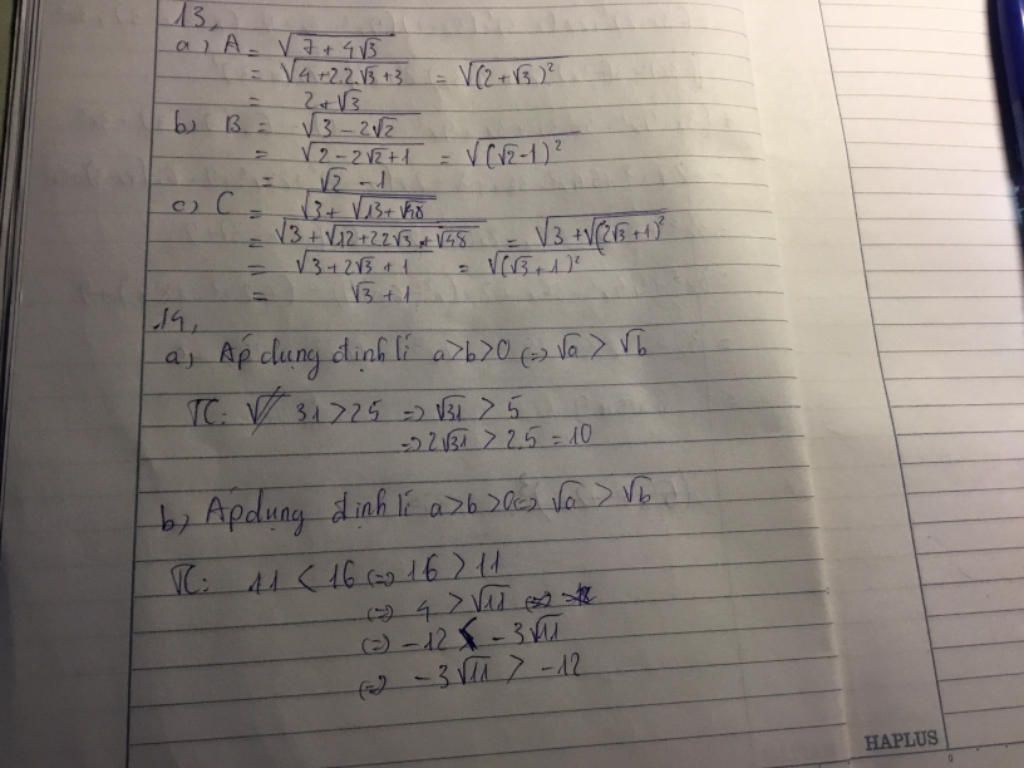 13,
a) A = √(7+4√3)
= √(4+2.2.√3+3) = √(2+√3)²
= 2+√3
b) B = √(3-2√2)
= √(2-2√2+1) = √(√2-1)²
= √2 -1
c) C = √(3+√(13+√48))
= √(3+√(12+2.2√3+√48)) = √(3+√(2√3+1)²)
= √(3+2√3+1) = √(√3+1)²
= √3+1
14,
a) Áp dụng định lí a>b>0 (=) √a > √b
TC: 31 > 25 => √31 > 5
=> 2√31 > 2.5 = 10
b) Áp dụng định lí a>b>0 (=) √a > √b
TC: 11 < 16 (=) 16 > 11
(=) 4 > √11
(=) -12 < -3√11
(=) -3√11 > -12
HAPLUS